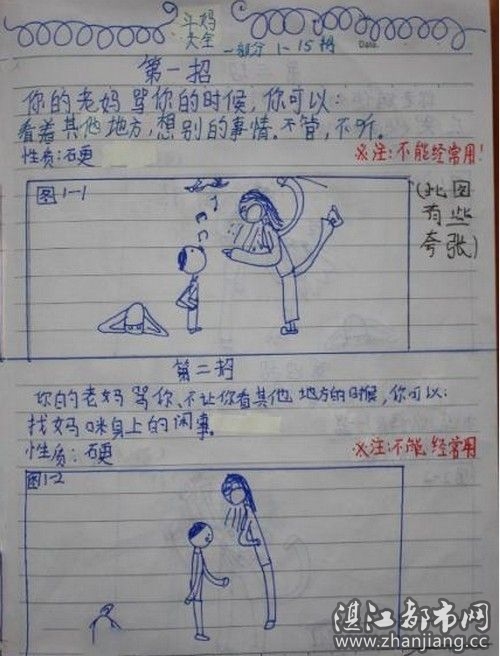 斗妈
大全
一部分 1-15招
Date.
第一招
你的老妈骂你的时候,你可以:
看着其他地方,想别的事情.不管,不听。
性质:石更
※注:不能经常用!
图1-1
(此图
有些
夸张)
第二招
你的老妈骂你、不让你看其他地方的时候,你可以:
找妈咪身上的闲事。
性质:石更
※注:不能经常用
图1-2
湛江都市网
www.zhanjiang.cc